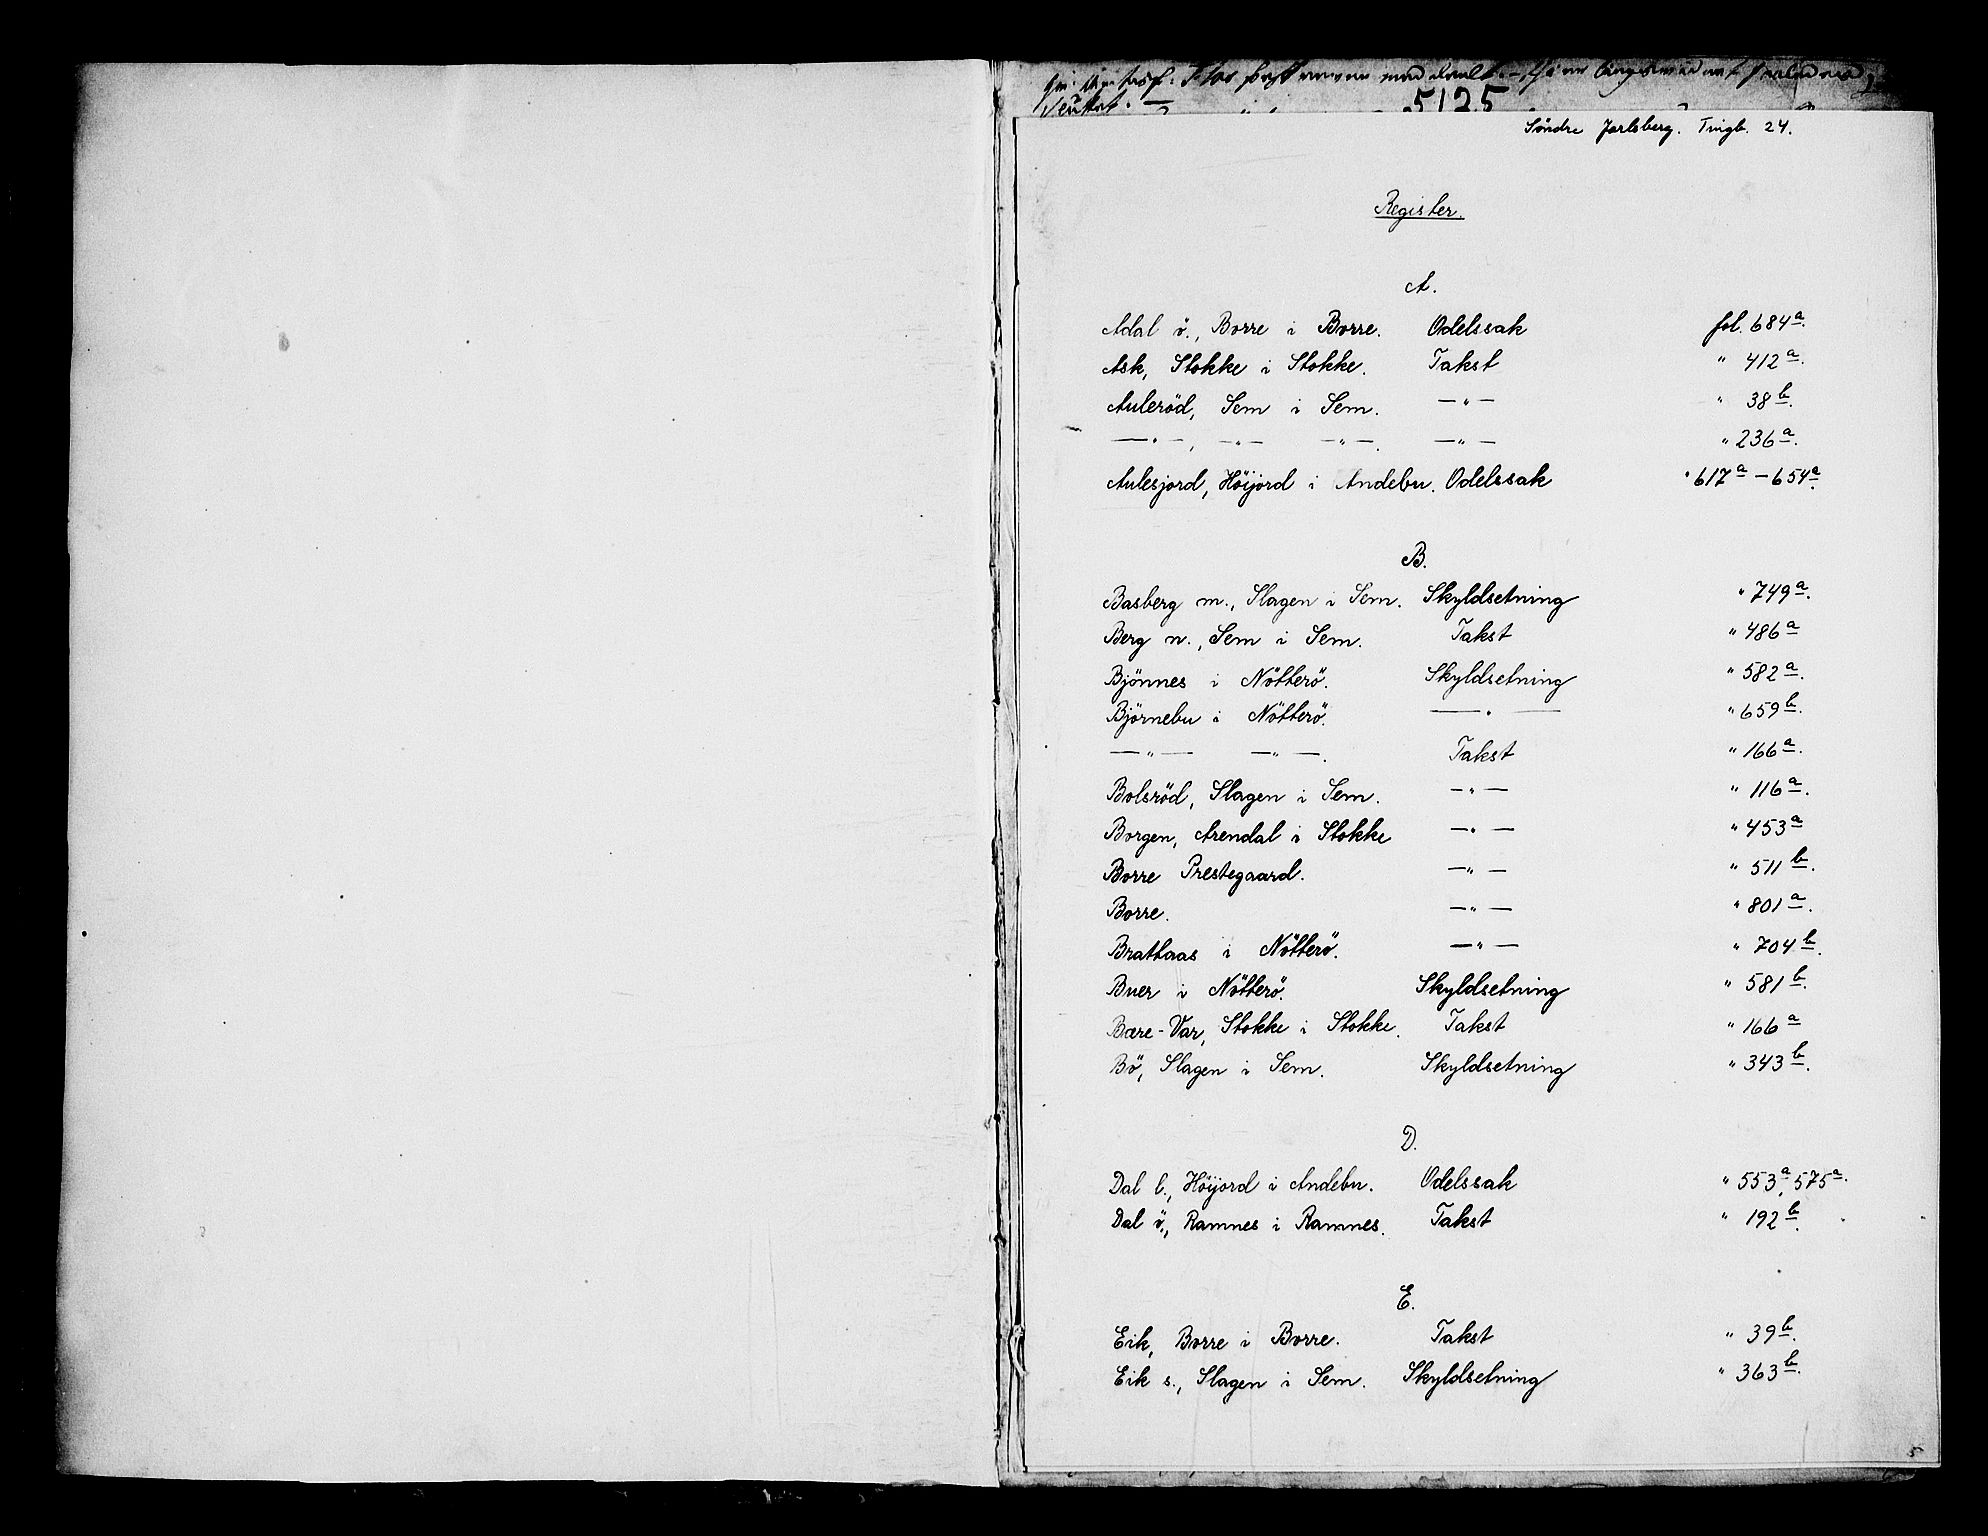 5125
Söndre Jarlsberg. Tingb. 24.
Register.
A.
Adal ö., Borre i Borre. Odelssak fol. 684a.
Ask, Stokke i Stokke. Takst " 412a.
Auleröd, Sem i Sem. —"— " 38b.
—"—, —"— —"—. —"— " 236a.
Aulesjord, Höijord i Andebu. Odelssak " 617a – 654a.
B.
Basberg m., Slagen i Sem. Skyldsetning " 749a.
Berg n., Sem i Sem. Takst " 486a
Bjönnes i Nötterö. Skyldsetning " 582a.
Björnebu i Nötterö. —"— " 659b.
—"— —"—. Takst " 166a.
Bolsröd, Slagen i Sem. —"— " 116a.
Borgen, Arendal i Stokke —"— " 453a
Borre Prestegaard. —"— " 511b.
Borre. —"— " 801a.
Brattaas i Nötterö. —"— " 704b.
Buer i Nötterö. Skyldsetning " 581b.
Bære-Var, Stokke i Stokke. Takst " 166a
Bö, Slagen i Sem. Skyldsetning " 343b.
D.
Dal l., Höijord i Andebu. Odelssak " 553a, 575a.
Dal ö., Ramnes i Ramnes. Takst " 192b.
E.
Eik, Borre i Borre. Takst " 39b.
Eik s., Slagen i Sem. Skyldsetning " 363b.
5